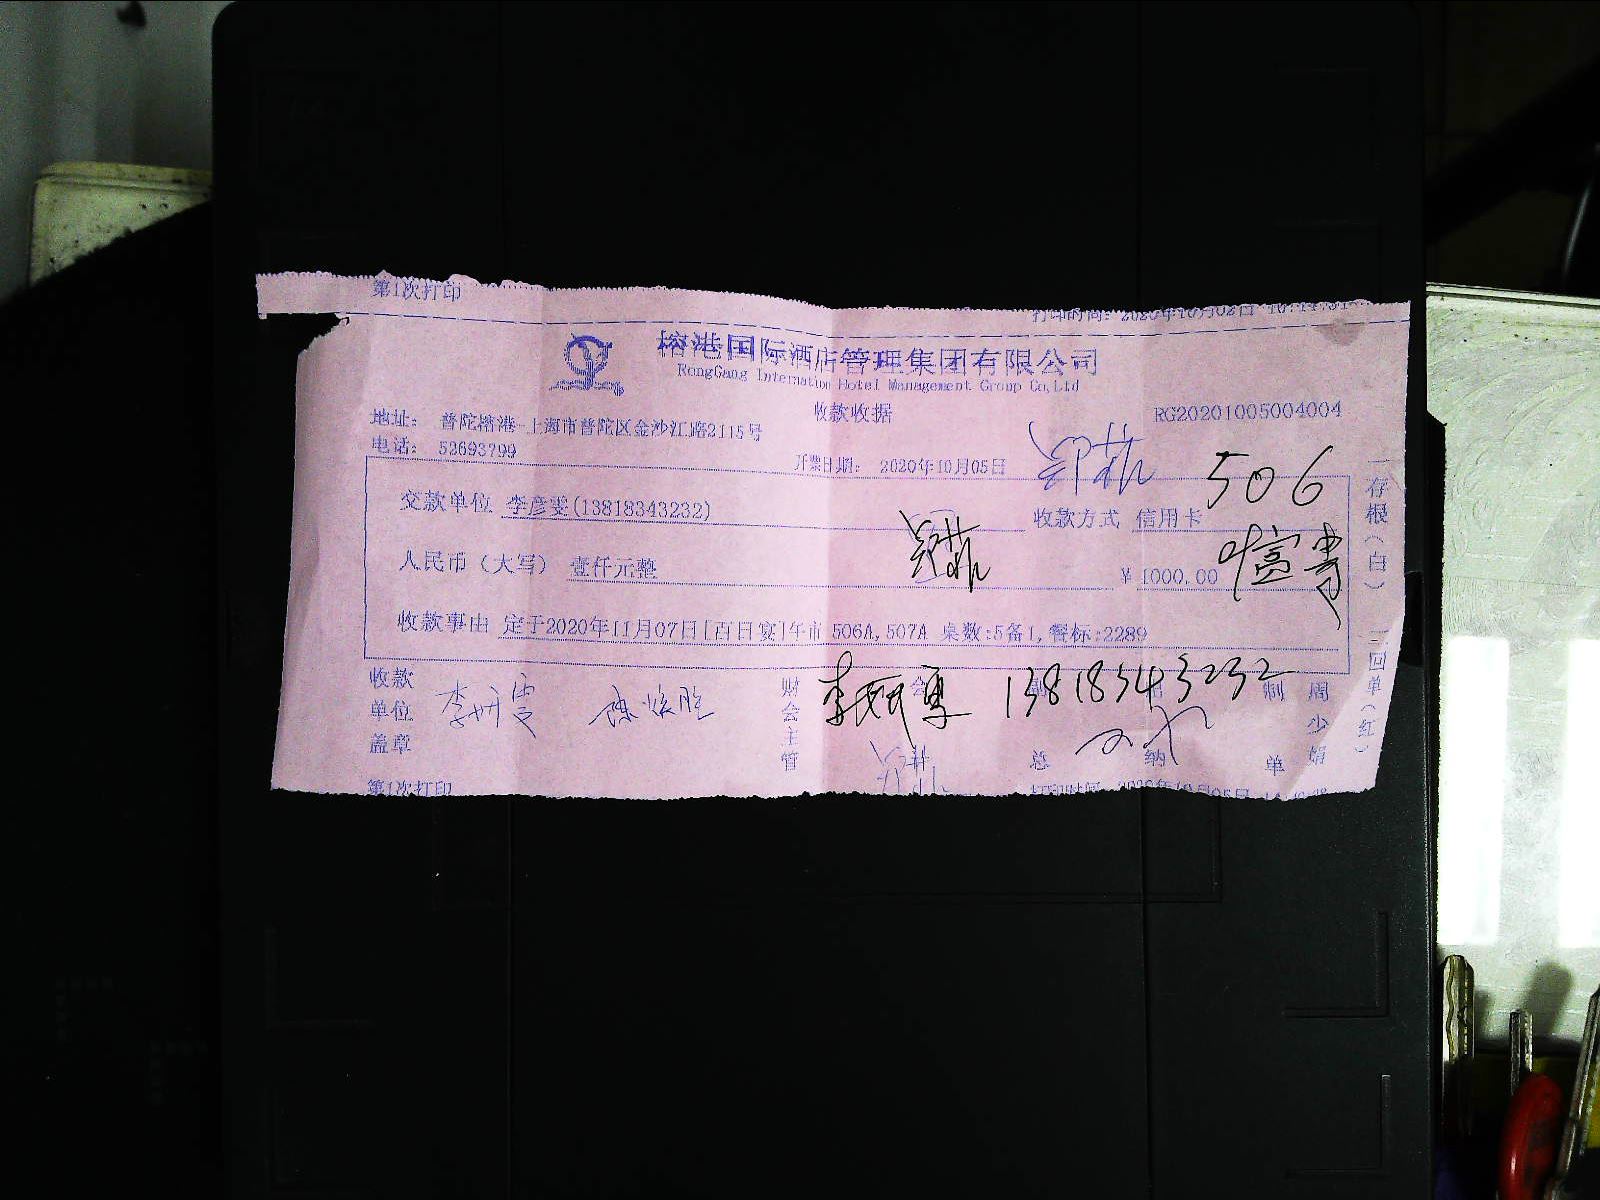 第1次打印 打印时间: 2020年10月02日
榕港国际酒店管理集团有限公司
RongGang Internation Hotel Management Group Co,Ltd
收款收据 RG20201005004004
地址: 普陀榕港-上海市普陀区金沙江路2115号
电话: 52693799 开票日期: 2020年10月05日
506
交款单位 李彦雯(13818343232) 收款方式 信用卡
人民币(大写) 壹仟元整 ¥ 1000.00
收款事由 定于2020年11月07日[百日宴]午市 506A,507A 桌数:5备1,餐标:2289
收款单位盖章 财会主管 会计 副总 出纳 制单 周少娟
13818343232
一存根(白) 三回单(红)
第1次打印 打印时间 2020年10月05日